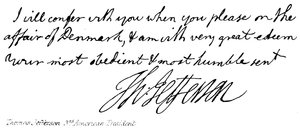 I will confer with you when you please on the
affair of Denmark, & am with very great esteem
Your most obedient & most humble servt
Th: Jefferson
Thomas Jefferson 3rd American President